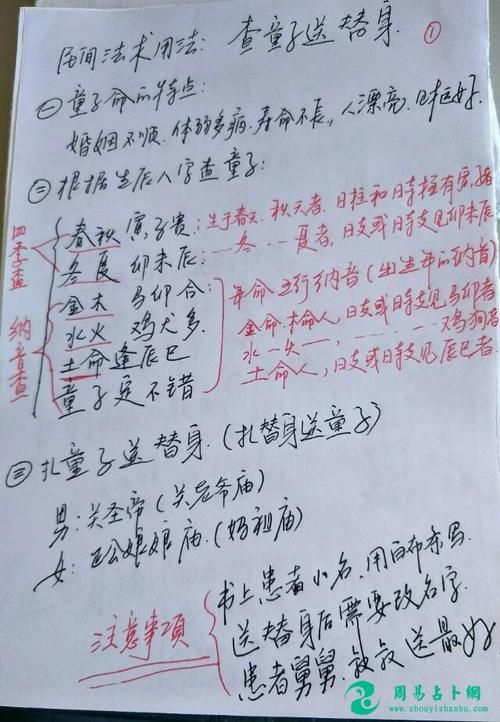 民间法术用法: 查童子送替身 ①
㊀ 童子命的特点:
婚姻不顺. 体弱多病. 寿命不长, 人漂亮.
㊁ 根据生辰八字查童子:
四季查
春秋 寅子贵: 生于春天. 秋天者. 日柱和时柱有寅.
冬夏 卯未辰: 冬 夏者, 日支或时支见卯未辰
纳音查
年命五行纳音 (出生年的纳音)
金木 马卯合: 金命.木命人, 日支或时支见马卯者
水火 鸡犬多. 水一火一, 鸡狗者
土命逢辰巳 土命人, 日支或时支见辰巳者
童子定不错
㊂ 扎童子送替身. (扎替身送童子)
男: 关圣帝 (关老爷庙)
女: 娘娘庙. (妈祖庙)
注意事项
书上患者小名, 用白布条写.
送替身后需要改名字.
患者舅舅. 叔叔送最好
周易占卜網
www.zhouyizhanbu.com